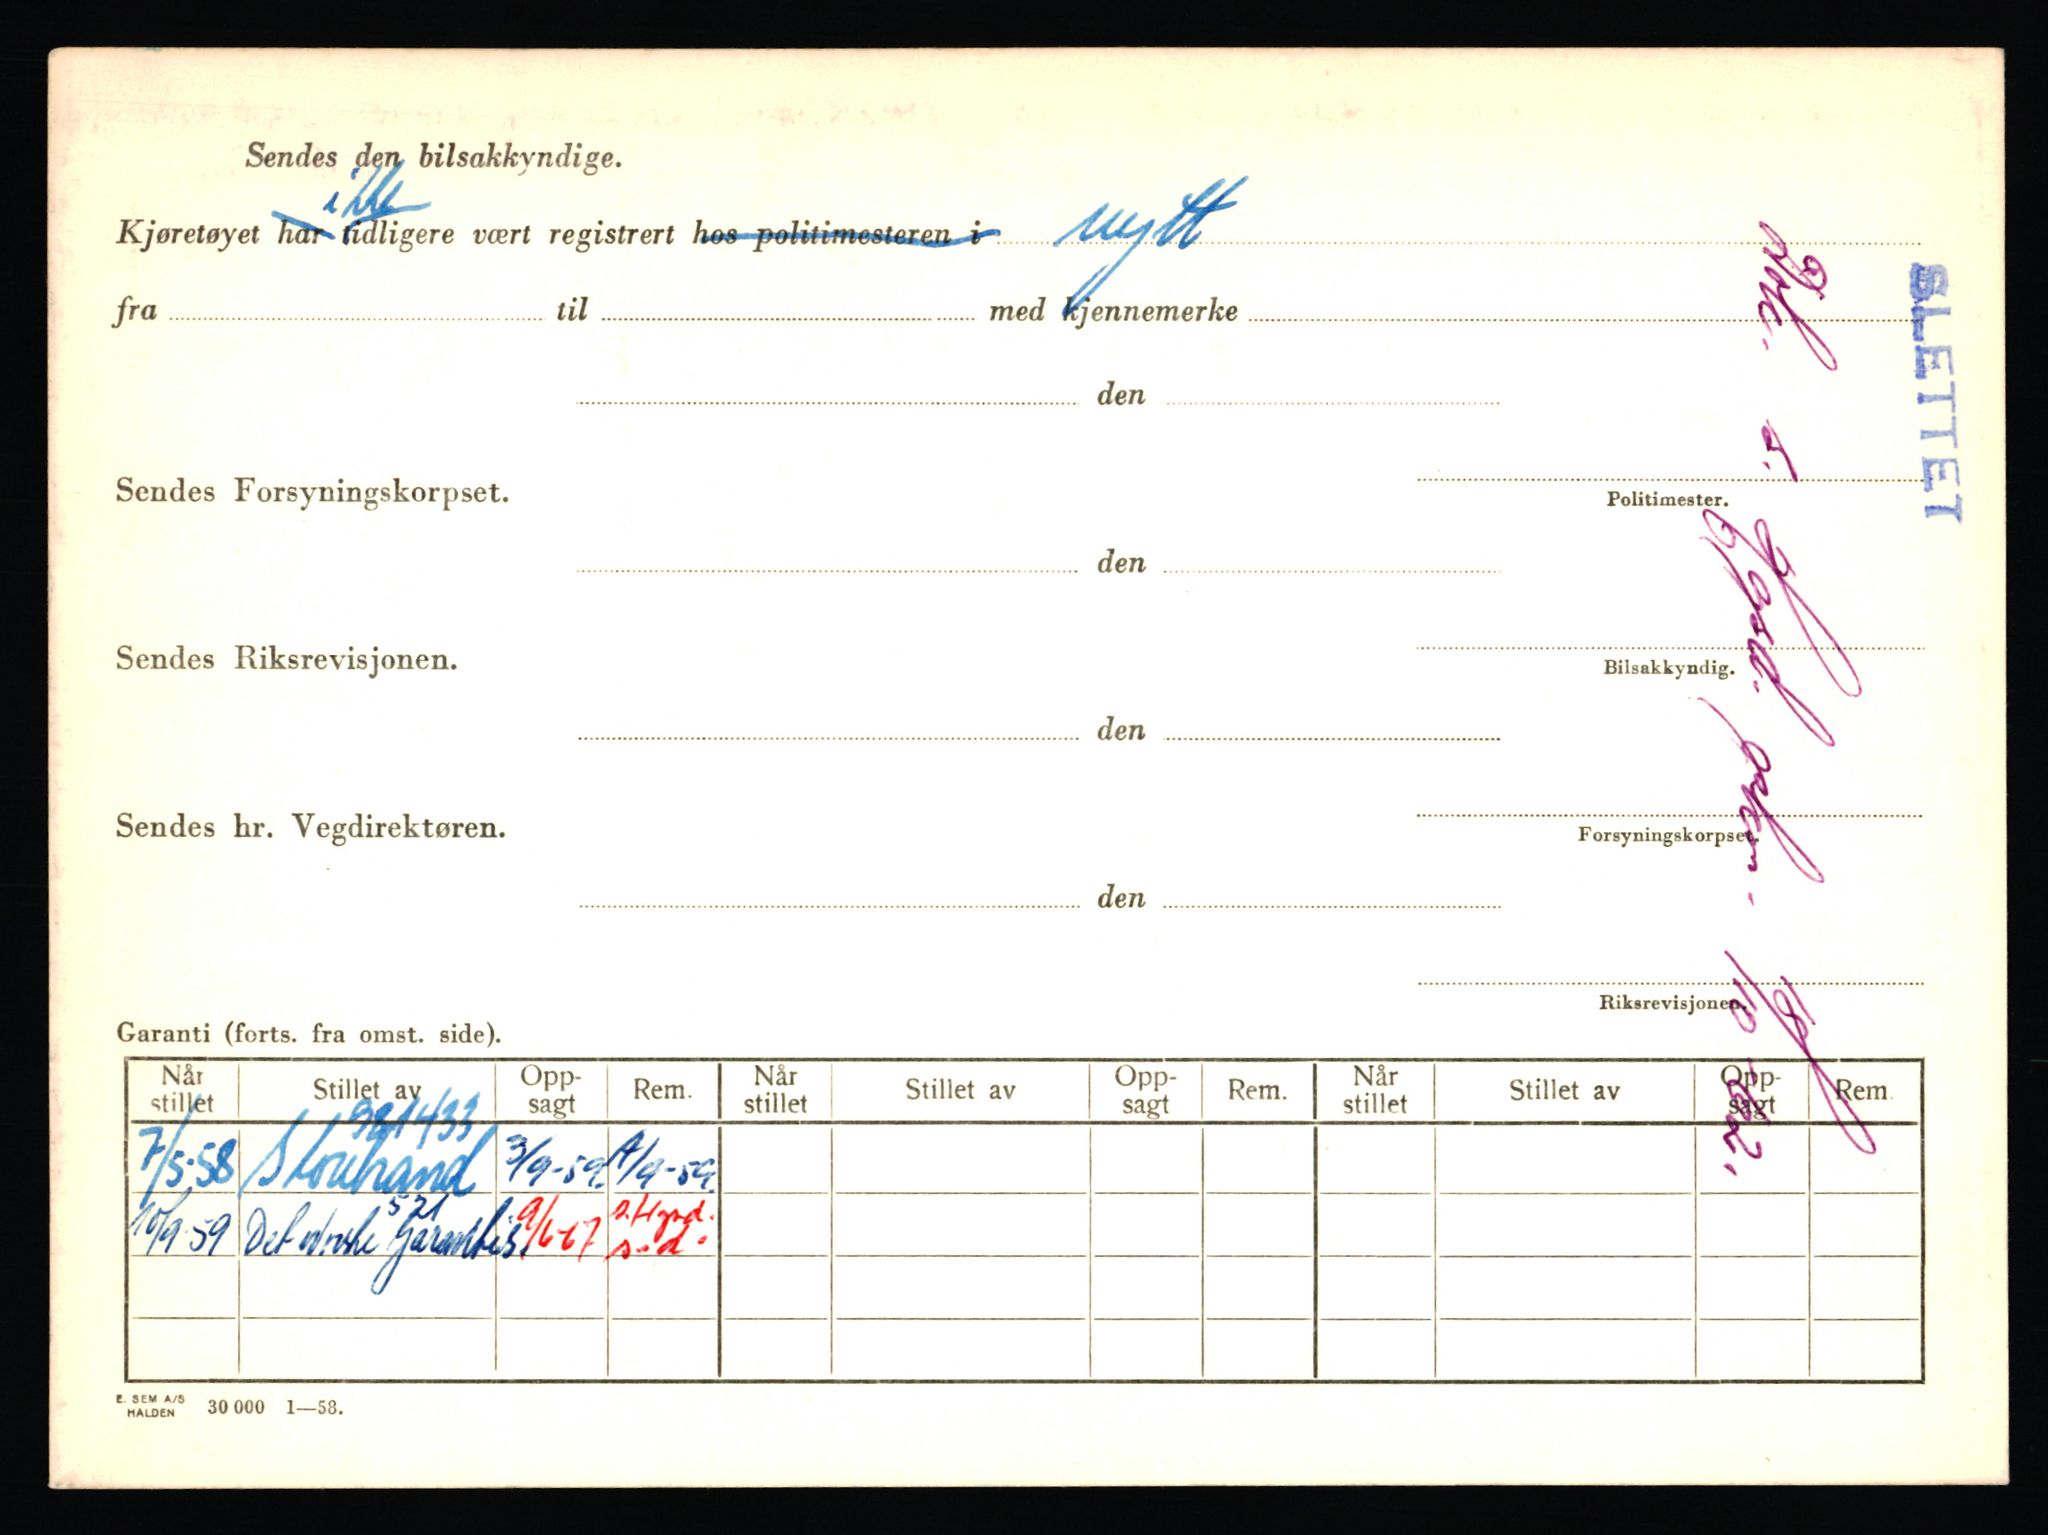 Sendes den bilsakkyndige.
ikke
Kjøretøyet har tidligere vært registrert hos politimesteren i nytt
fra til med kjennemerke
den
Politimester.
Sendes Forsyningskorpset.
den
Bilsakkyndig.
Sendes Riksrevisjonen.
den
Forsyningskorpset.
Sendes hr. Vegdirektøren.
den
Riksrevisjonen.
SLETTET
Garanti (forts. fra omst. side).
Når stillet Stillet av Opp-sagt Rem. Når stillet Stillet av Opp-sagt Rem. Når stillet Stillet av Opp-sagt Rem.
981433
7/5-58 Storebrand 3/9-59. 4/9-59.
521
10/9-59 Det norske Garantis. 9/6-67
E. SEM A/S
HALDEN 30 000 1—58.